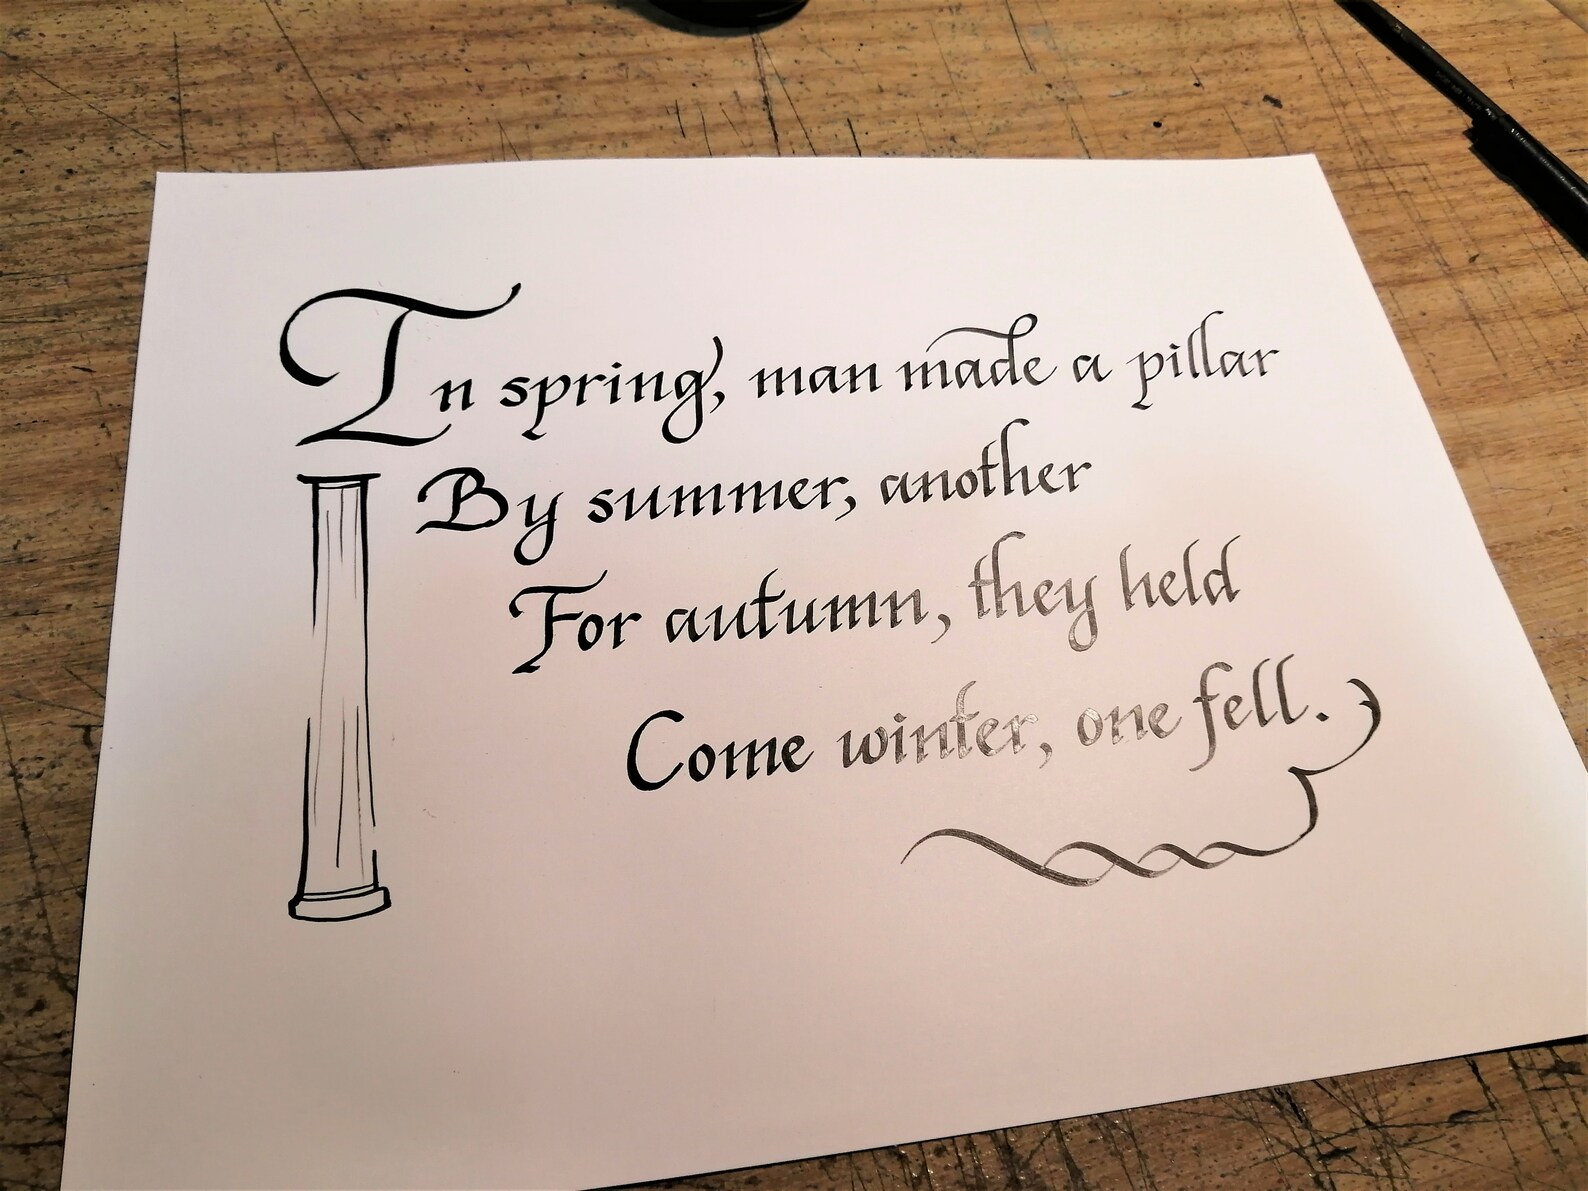 In spring, man made a pillar
By summer, another
For autumn, they held
Come winter, one fell.